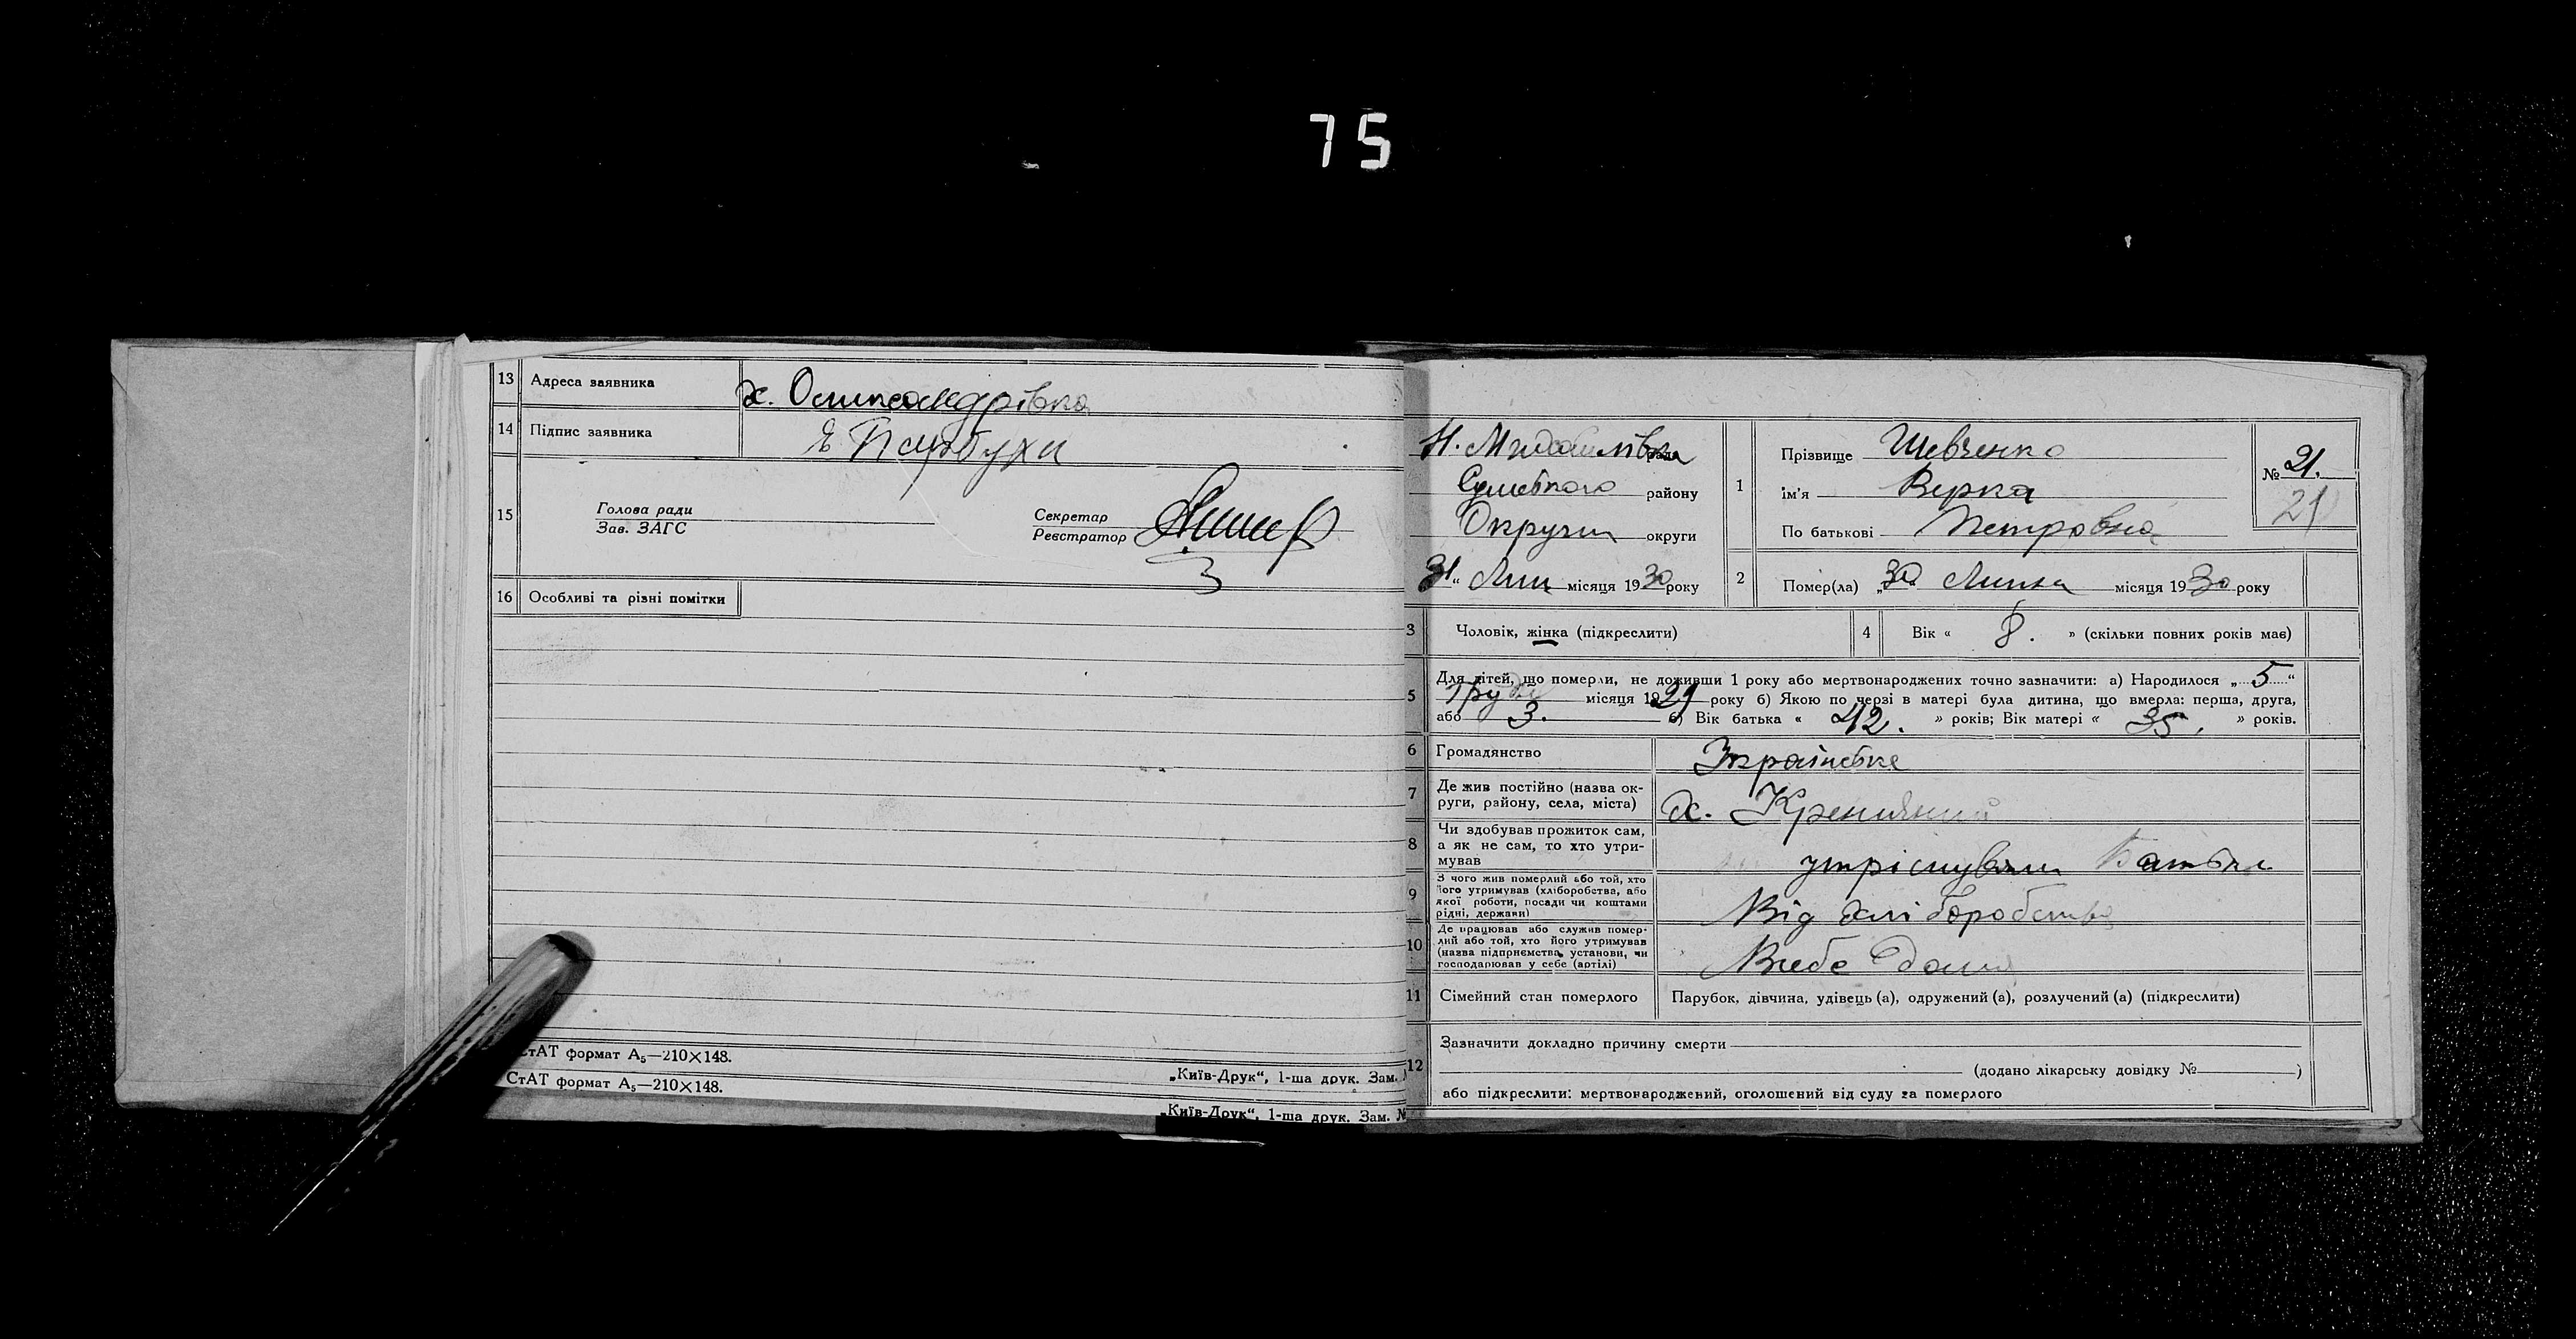 75
13 Адреса заявника х. Олександрівка
14 Підпис заявника
15 Голова ради
Зав. ЗАГС
Секретар
Реєстратор
16 Особливі та різні помітки
СтАТ формат А₅—210×148.
„Київ-Друк“, 1-ша друк. Зам.
СтАТ формат А₅—210×148.
„Київ-Друк“, 1-ша друк. Зам. №
рада
Сумського району
Округи округи
31 “ Лип місяця 1930 року
1 Прізвище Шевченко
ім'я Вірка
По батькові Петровна
№ 21.
21
2 Помер(ла) „30 Липня місяця 1930 року
3 Чоловік, жінка (підкреслити)
4 Вік « 8. » (скільки повних років має)
5 Для дітей, що померли, не доживши 1 року або мертвонароджених точно зазначити: а) Народилося „ 5 “
Грудн місяця 1929 року б) Якою по черзі в матері була дитина, що вмерла: перша, друга,
або 3. в) Вік батька « 42. » років; Вік матері « 35. » років.
6 Громадянство Українське
7 Де жив постійно (назва ок-
руги, району, села, міста) х.
8 Чи здобував прожиток сам,
а як не сам, то хто утри-
мував утрімували Батьки
9 З чого жив померлий або той, хто
його утримував (хліборобства, або
якої роботи, посади чи коштами
рідні, держави) Від хліборобства
10 Де працював або служив помер-
лий або той, хто його утримував
(назва підприємства, установи, чи
господарював у себе (артілі) Всебе дома
11 Сімейний стан померлого Парубок, дівчина, удівець (а), одружений (а), розлучений (а) (підкреслити)
12 Зазначити докладно причину смерти
(додано лікарську довідку № )
або підкреслити: мертвонароджений, оголошений від суду за померлого